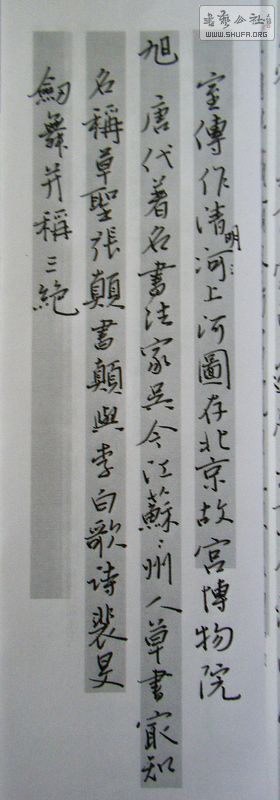 書藝公社
WWW.SHUFA.ORG
室傳作清明河上河圖存北京故宮博物院
旭 唐代著名書法家吳今江蘇〻州人草書最知
名稱草聖張顛書顛與李白歌诗裴旻
劍舞并稱三絕